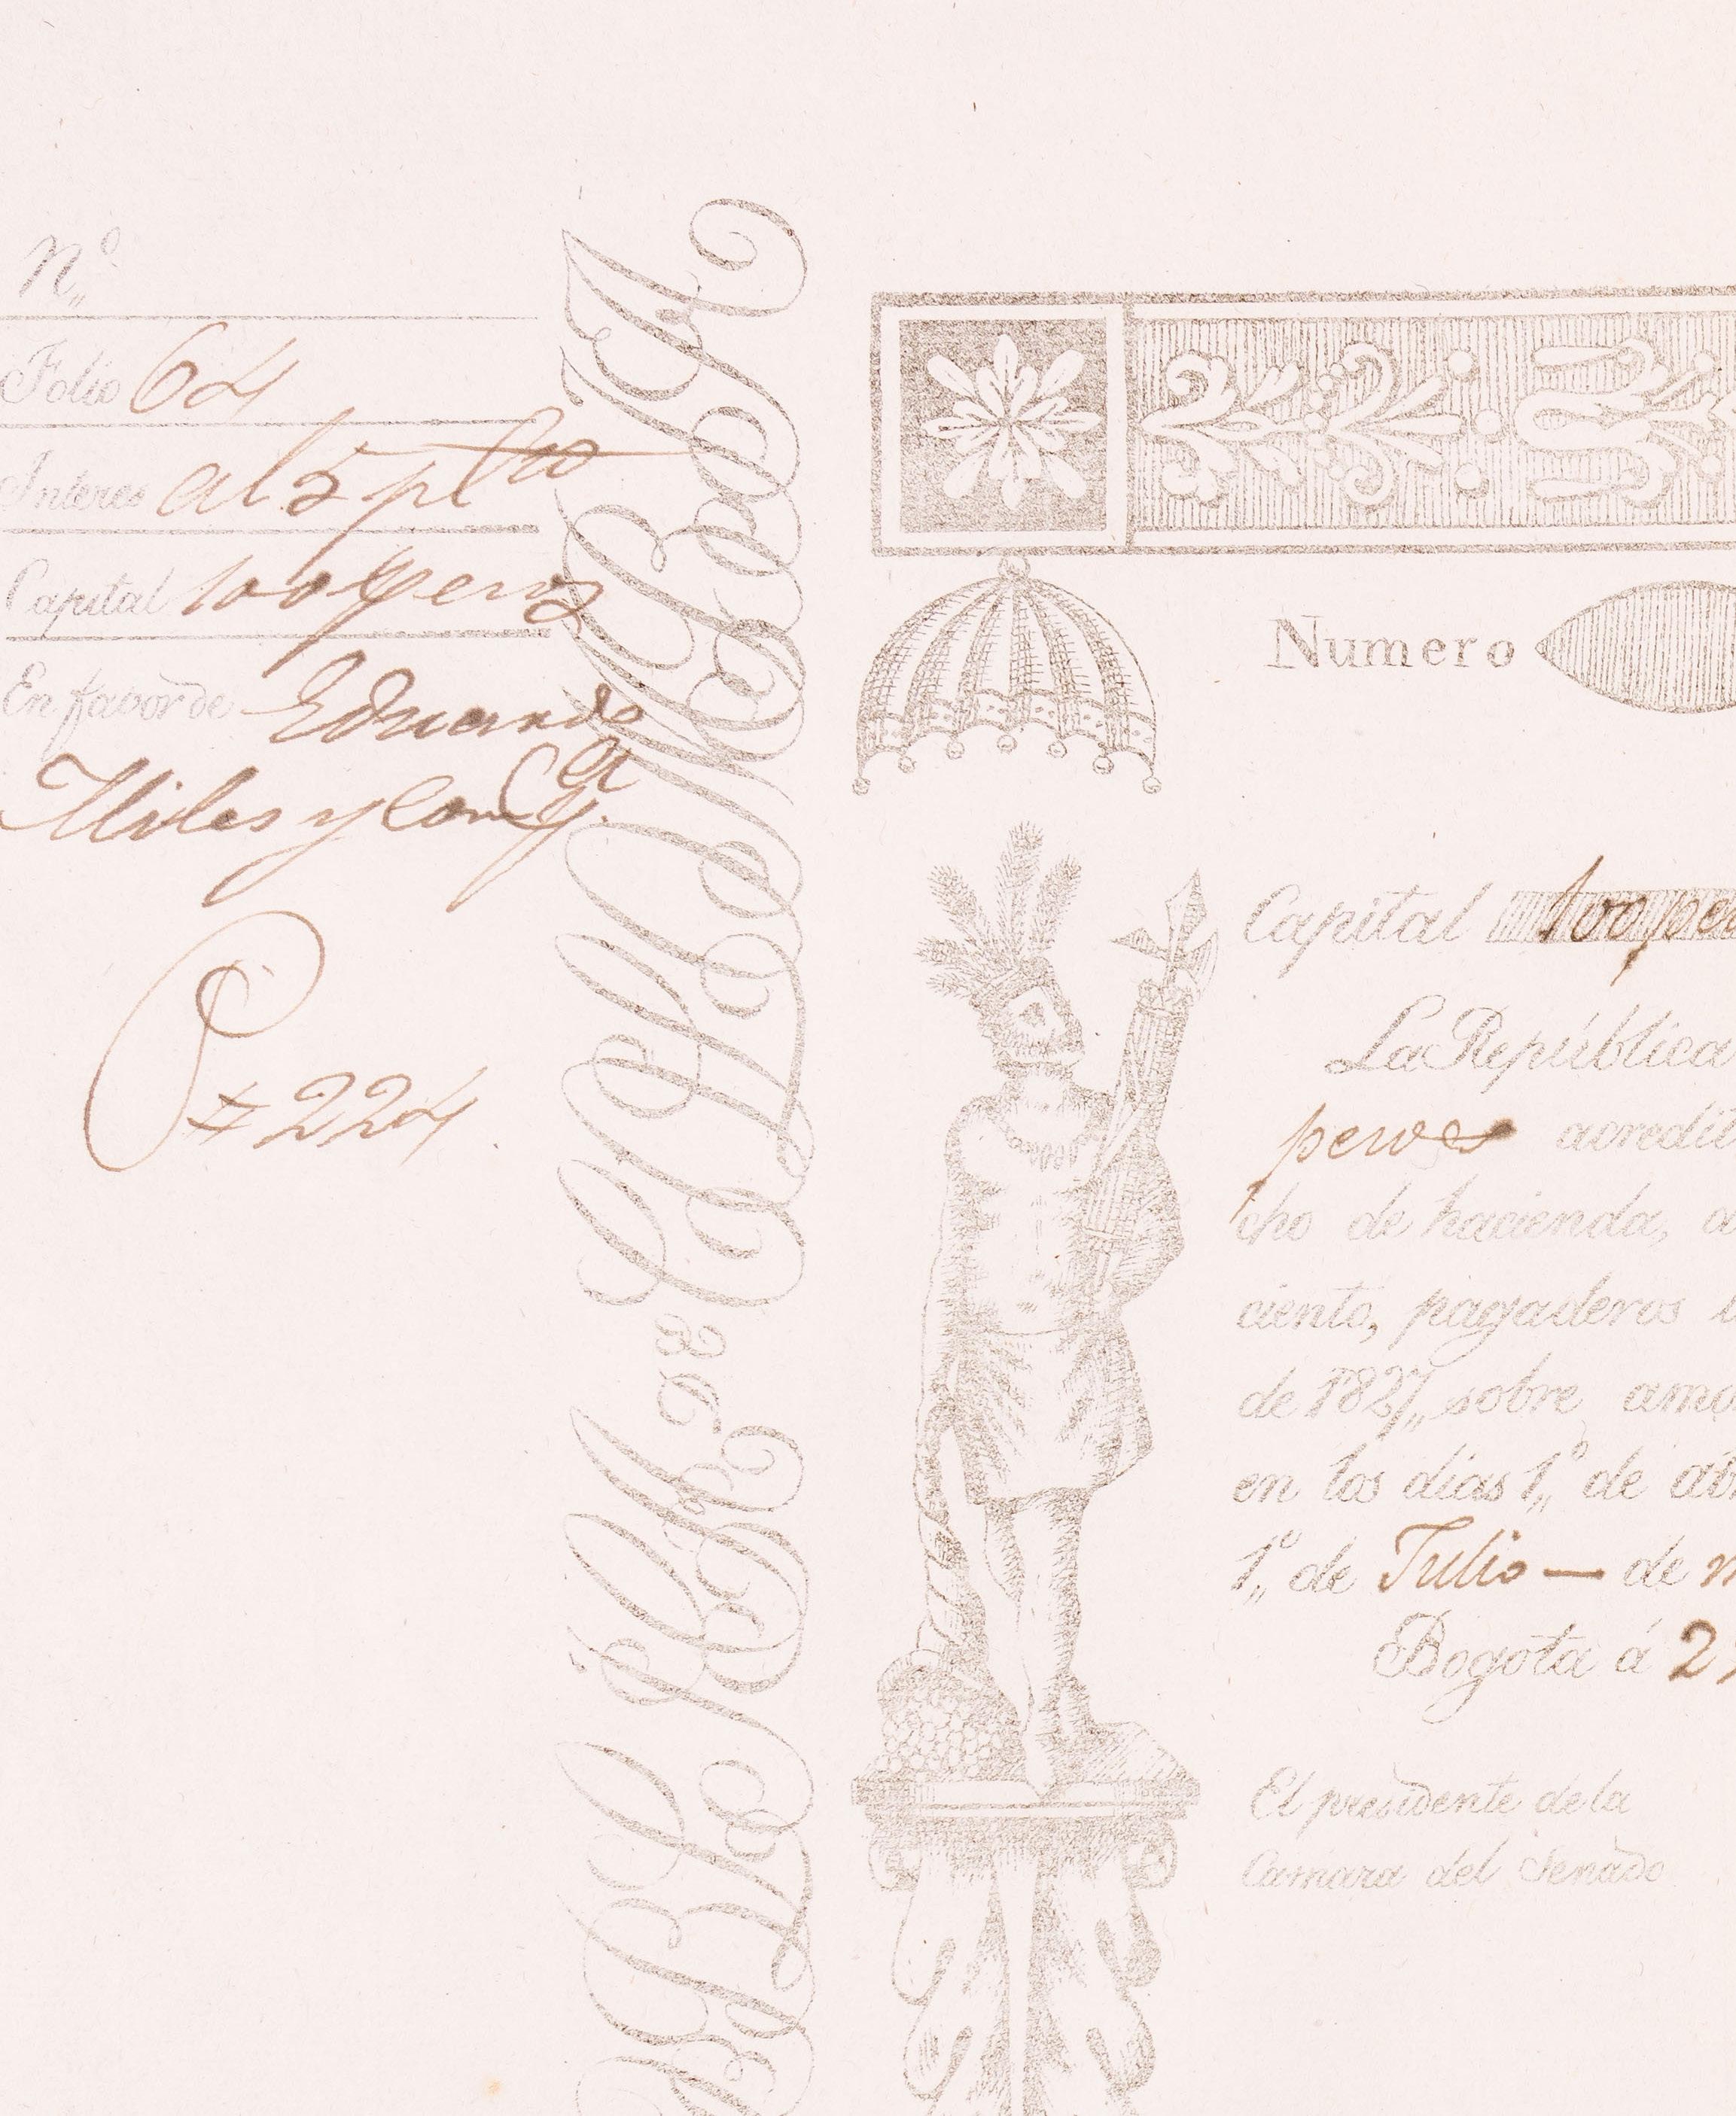 Nº
Folio 64
Interes al 5 p Cto
Capital 100 pesos
En favor de Eduardo
Miles y Comp
#224
DE COLOMBIA
Numero
Capital 100 pe
La República
pesos acredit
cho de hacienda, a
ciento, pagaderos
de 1827, sobre amo
en los dias 1º de ab
1º de Julio — de
Bogota á 2
El presidente de la
Camara del Senado